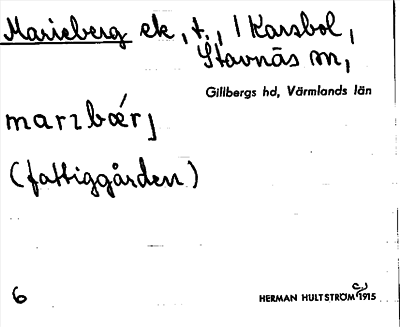 Marieberg ek, t., / Karsbol,
Stavnäs sn,
Gillbergs hd, Värmlands län
marzbǽrj
(fattiggården)
6
HERMAN HULTSTRÖM 1915